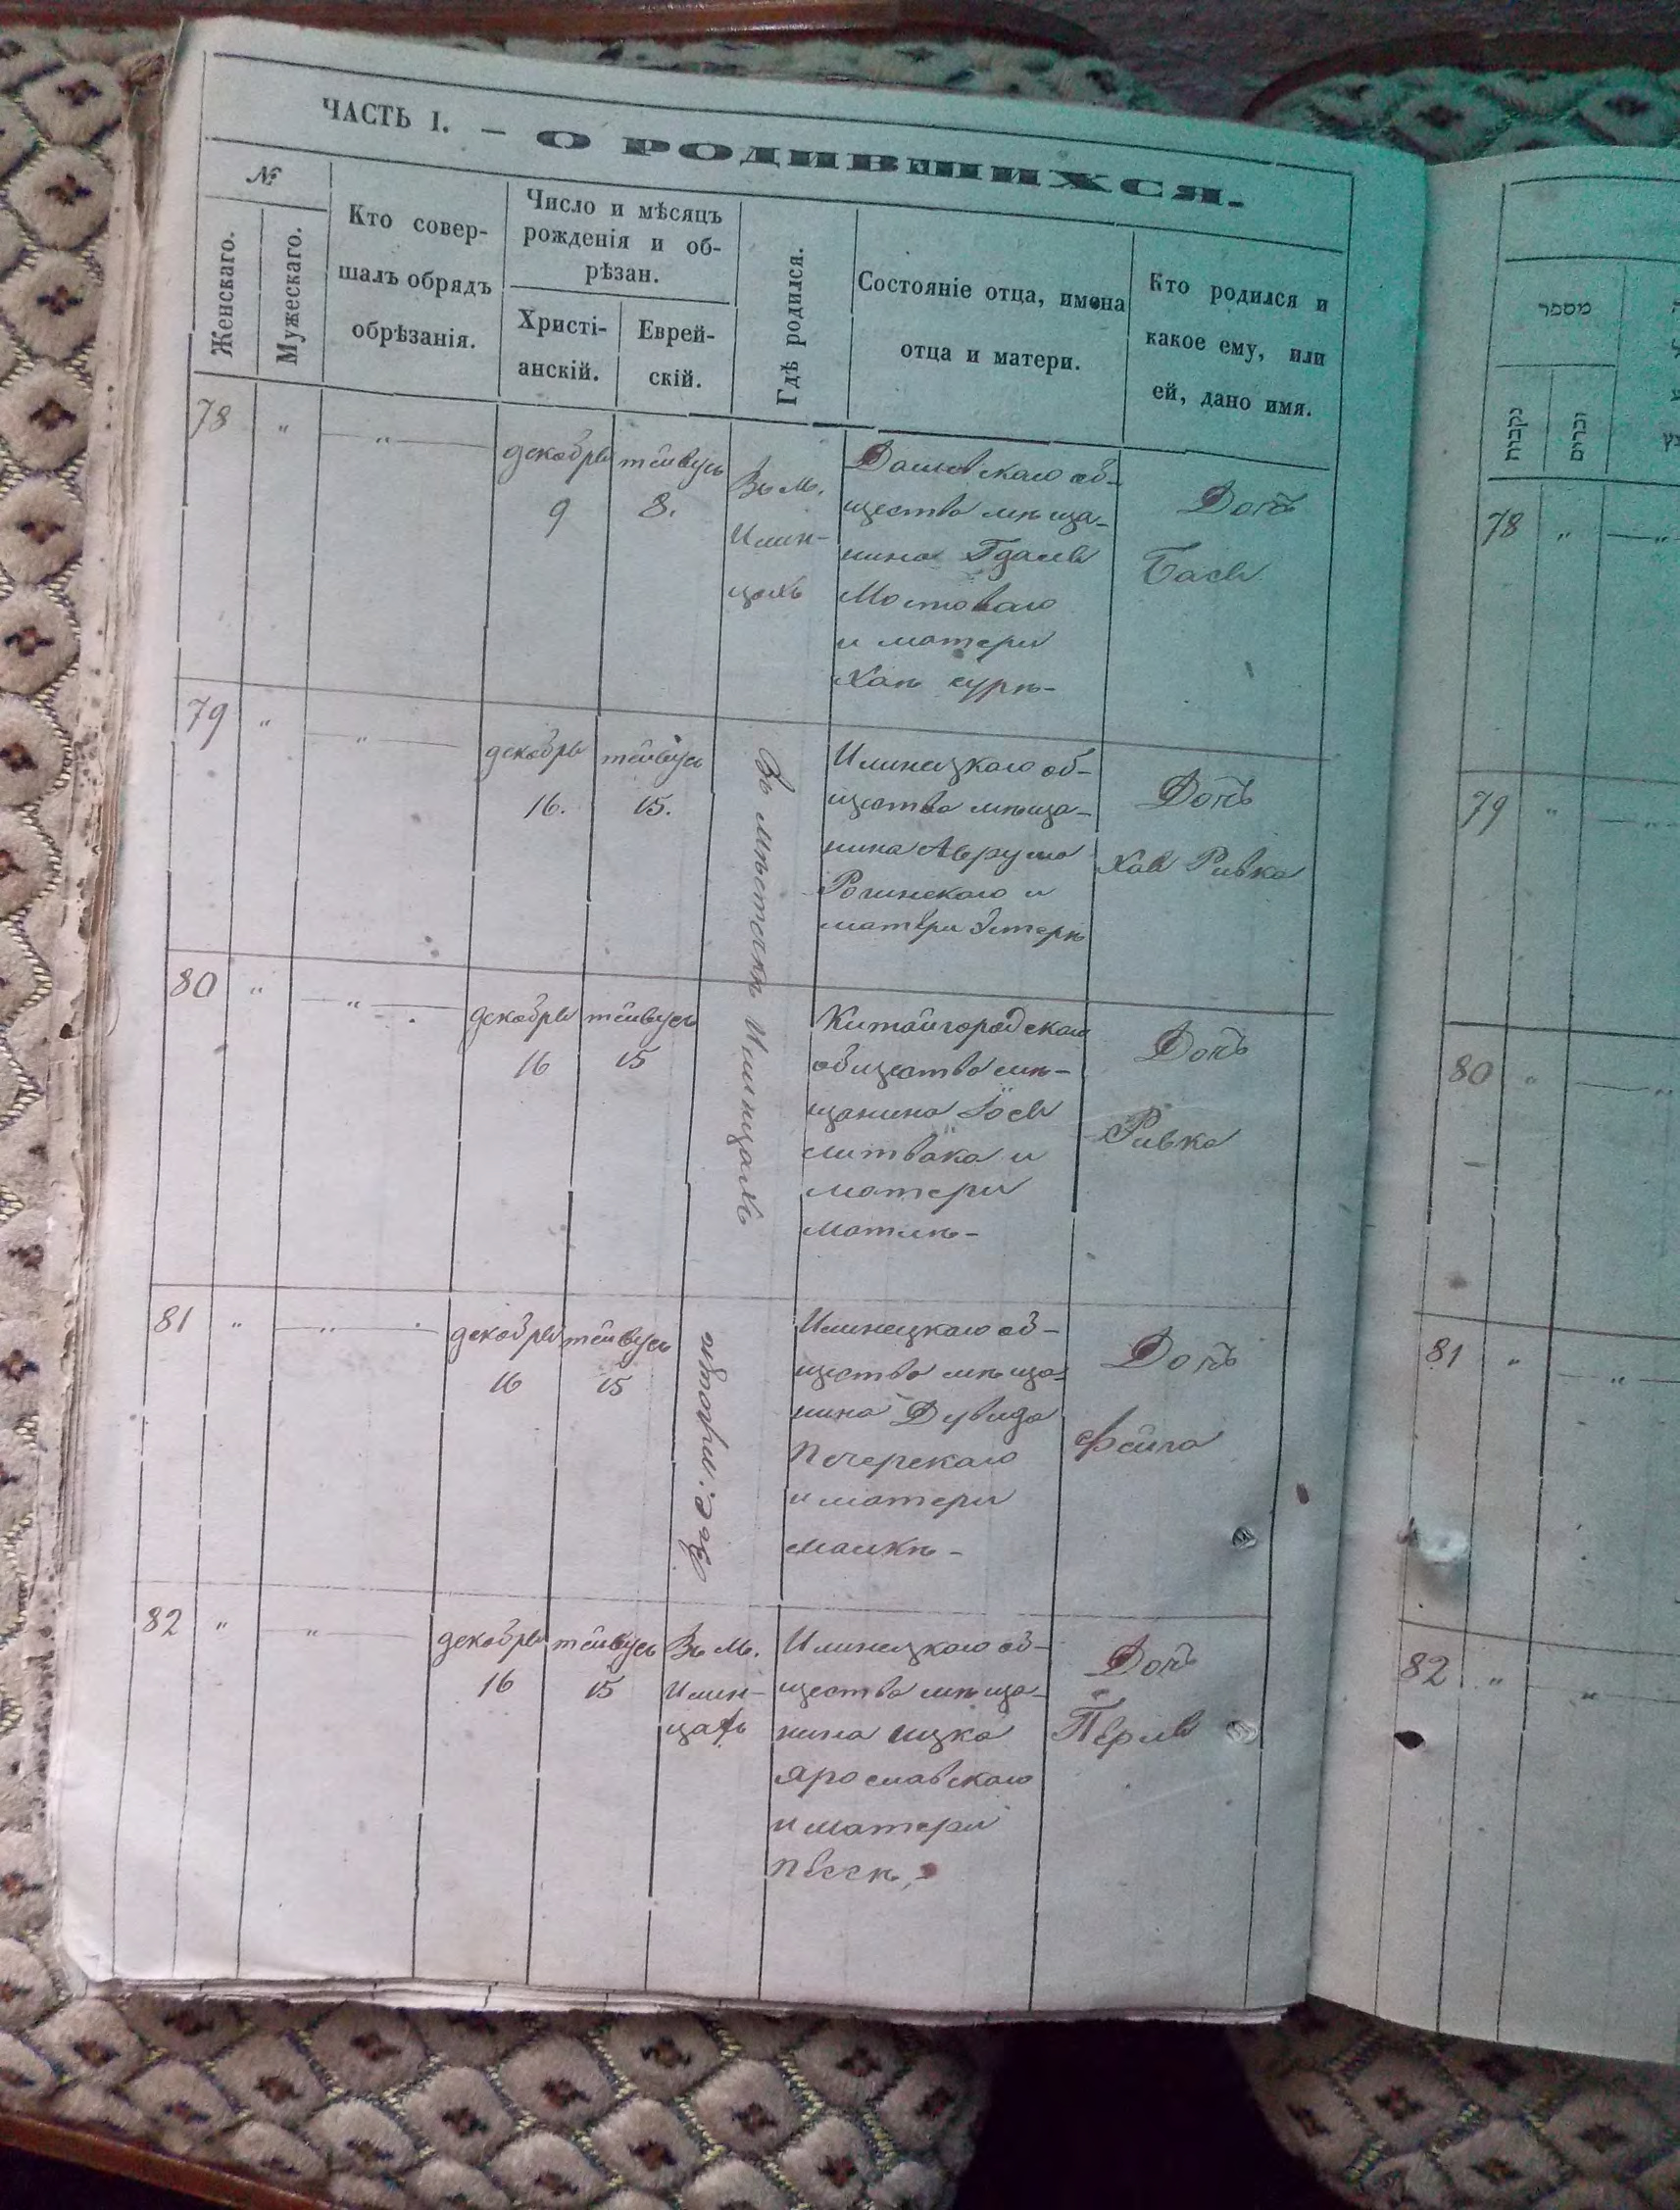 ЧАСТЬ I. — О РОДИВШИХСЯ.
№
Женскаго.
Мужескаго.
Кто совер-
шалъ обрядъ
обрѣзанія.
Число и мѣсяцъ
рожденія и об-
рѣзан.
Христі-
анскій.
Еврей-
скій.
Гдѣ родился.
Состояніе отца, имена
отца и матери.
Кто родился и
какое ему, или
ей, дано имя.
78 " — " —
декабря
9
тейвусъ
8.
Въ м.
Илин-
цахъ
Дашевскаго об-
щества мѣща-
нина Гдаля
Мостоваго
и матери
Хаи Сурѣ-
Дочь
Бася
79 " — " —
декабря
16.
тейвусъ
15.
Въ мѣстечкѣ Илинцахъ
Илинецкаго об-
щества мѣща-
нина Аврума
Рогинскаго и
матери Эстеръ
Дочь
Хая Ривка
80 " — " —
декабря
16
тейвусъ
15
Китайгородскаго
общества мѣ-
щанина Іося
Литвака и
матери
Матлѣ-
Дочь
Ривка
81 " — " —
декабря
16
тейвусъ
15
Илинецкаго об-
щества мѣща-
нина Дувида
Печерскаго
и матери
Малкѣ-
Дочь
Фейга
82 " — " —
декабря
16
тейвусъ
15
Въ м.
Илин-
цахъ
Илинецкаго об-
щества мѣща-
нина Ицка
Ярославскаго
и матери
Песѣ,-
Дочь
Перля
מספר
נקבות
זכרים
78 " — "
79 " — "
80 " — "
81 " — "
82 " — "